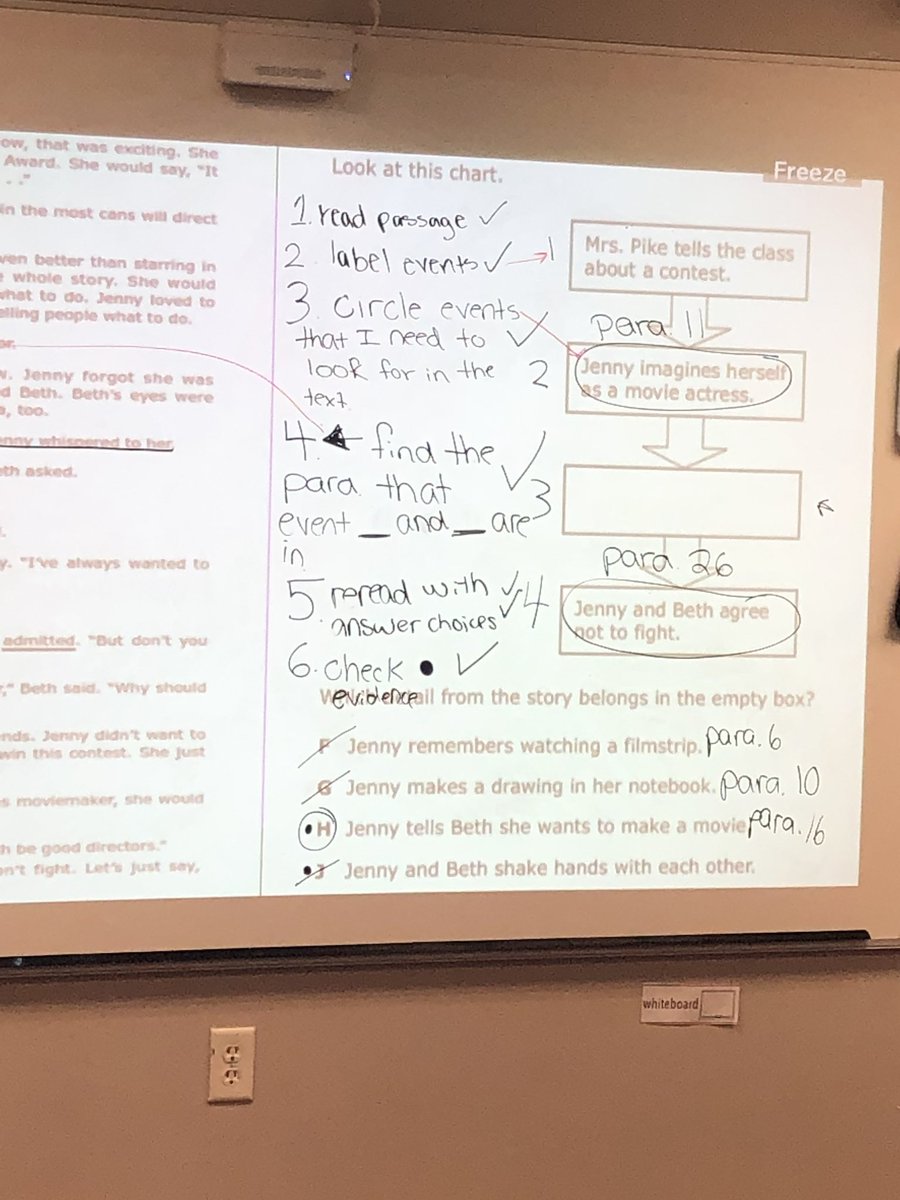 ow, that was exciting. She
Award. She would say, "It
. ."
in the most cans will direct
ven better than starring in
e whole story. She would
what to do. Jenny loved to
elling people what to do.
ar.
w. Jenny forgot she was
d Beth. Beth's eyes were
s, too.
enny whispered to her.
eth asked.
y. "I've always wanted to
admitted. "But don't you
," Beth said. "Why should
nds. Jenny didn't want to
win this contest. She just
s moviemaker, she would
h be good directors."
on't fight. Let's just say,
Look at this chart.
Freeze
1. read passage ✓
2 label events ✓
3. Circle events
that I need to ✓
look for in the
text
4. find the ✓
para. that
event _ and _ are
in
5 reread with ✓
answer choices ✓
6. check ● ✓
evidence
1
Mrs. Pike tells the class
about a contest.
para. 11
2
Jenny imagines herself
as a movie actress.
3
para. 26
4
Jenny and Beth agree
not to fight.
ail from the story belongs in the empty box?
F Jenny remembers watching a filmstrip. para. 6
G Jenny makes a drawing in her notebook. para. 10
H Jenny tells Beth she wants to make a movie para. 16
J Jenny and Beth shake hands with each other.
whiteboard